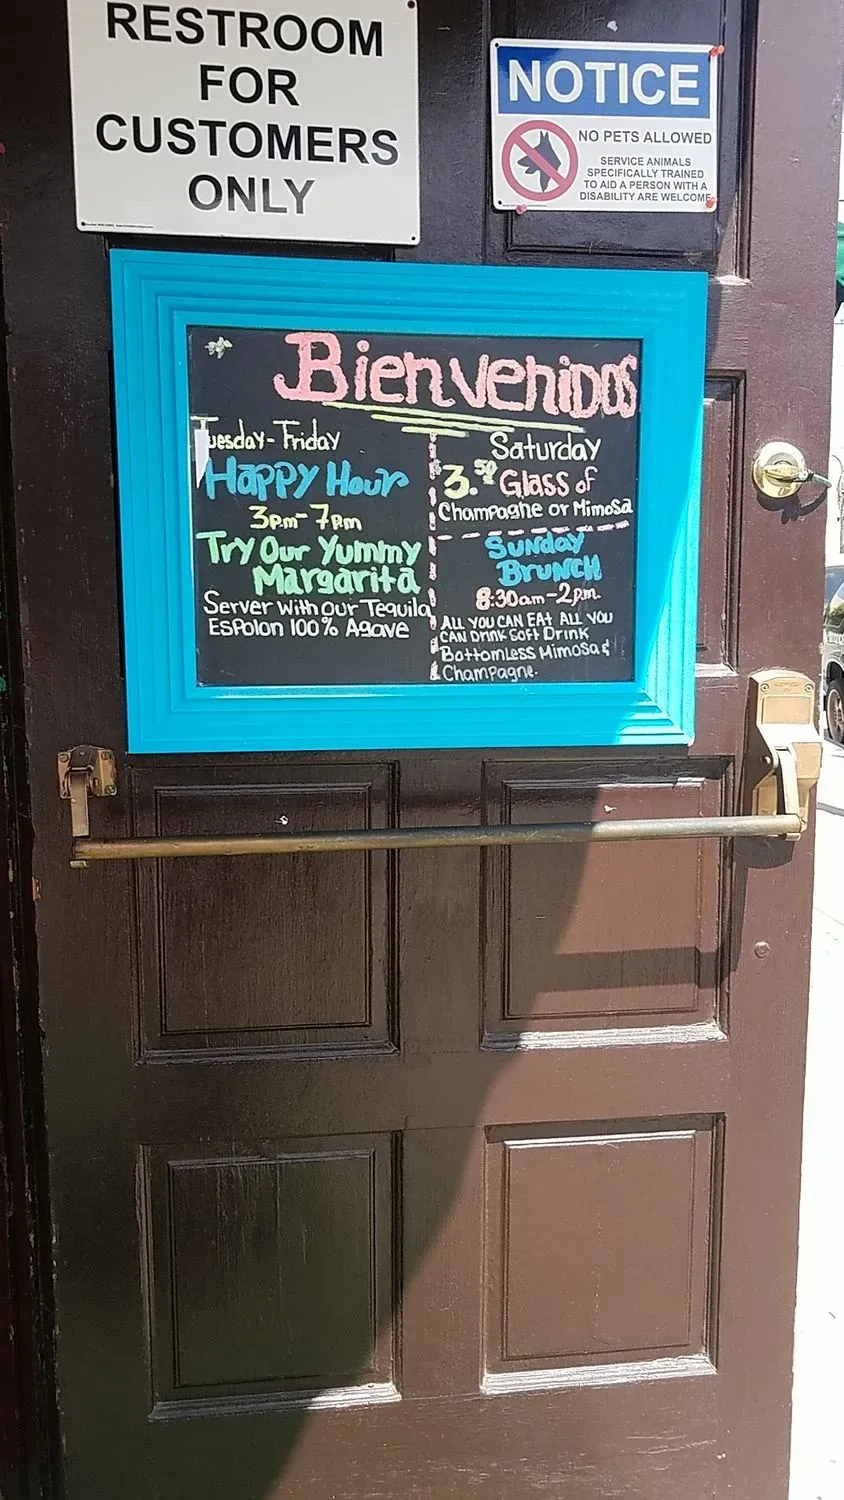 RESTROOM
FOR
CUSTOMERS
ONLY
NOTICE
NO PETS ALLOWED
SERVICE ANIMALS
SPECIFICALLY TRAINED
TO AID A PERSON WITH A
DISABILITY ARE WELCOME
Bienvenidos
Tuesday-Friday
Happy Hour
3pm-7pm
Try Our Yummy
Margarita
Server With our Tequila
Espolon 100% Agave
Saturday
3.50 Glass of
Champagne or Mimosa
Sunday
Brunch
8:30am-2pm.
ALL YOU CAN EAT ALL YOU
CAN DRINK SOFT DRINK
Bottomless Mimosa &
Champagne.